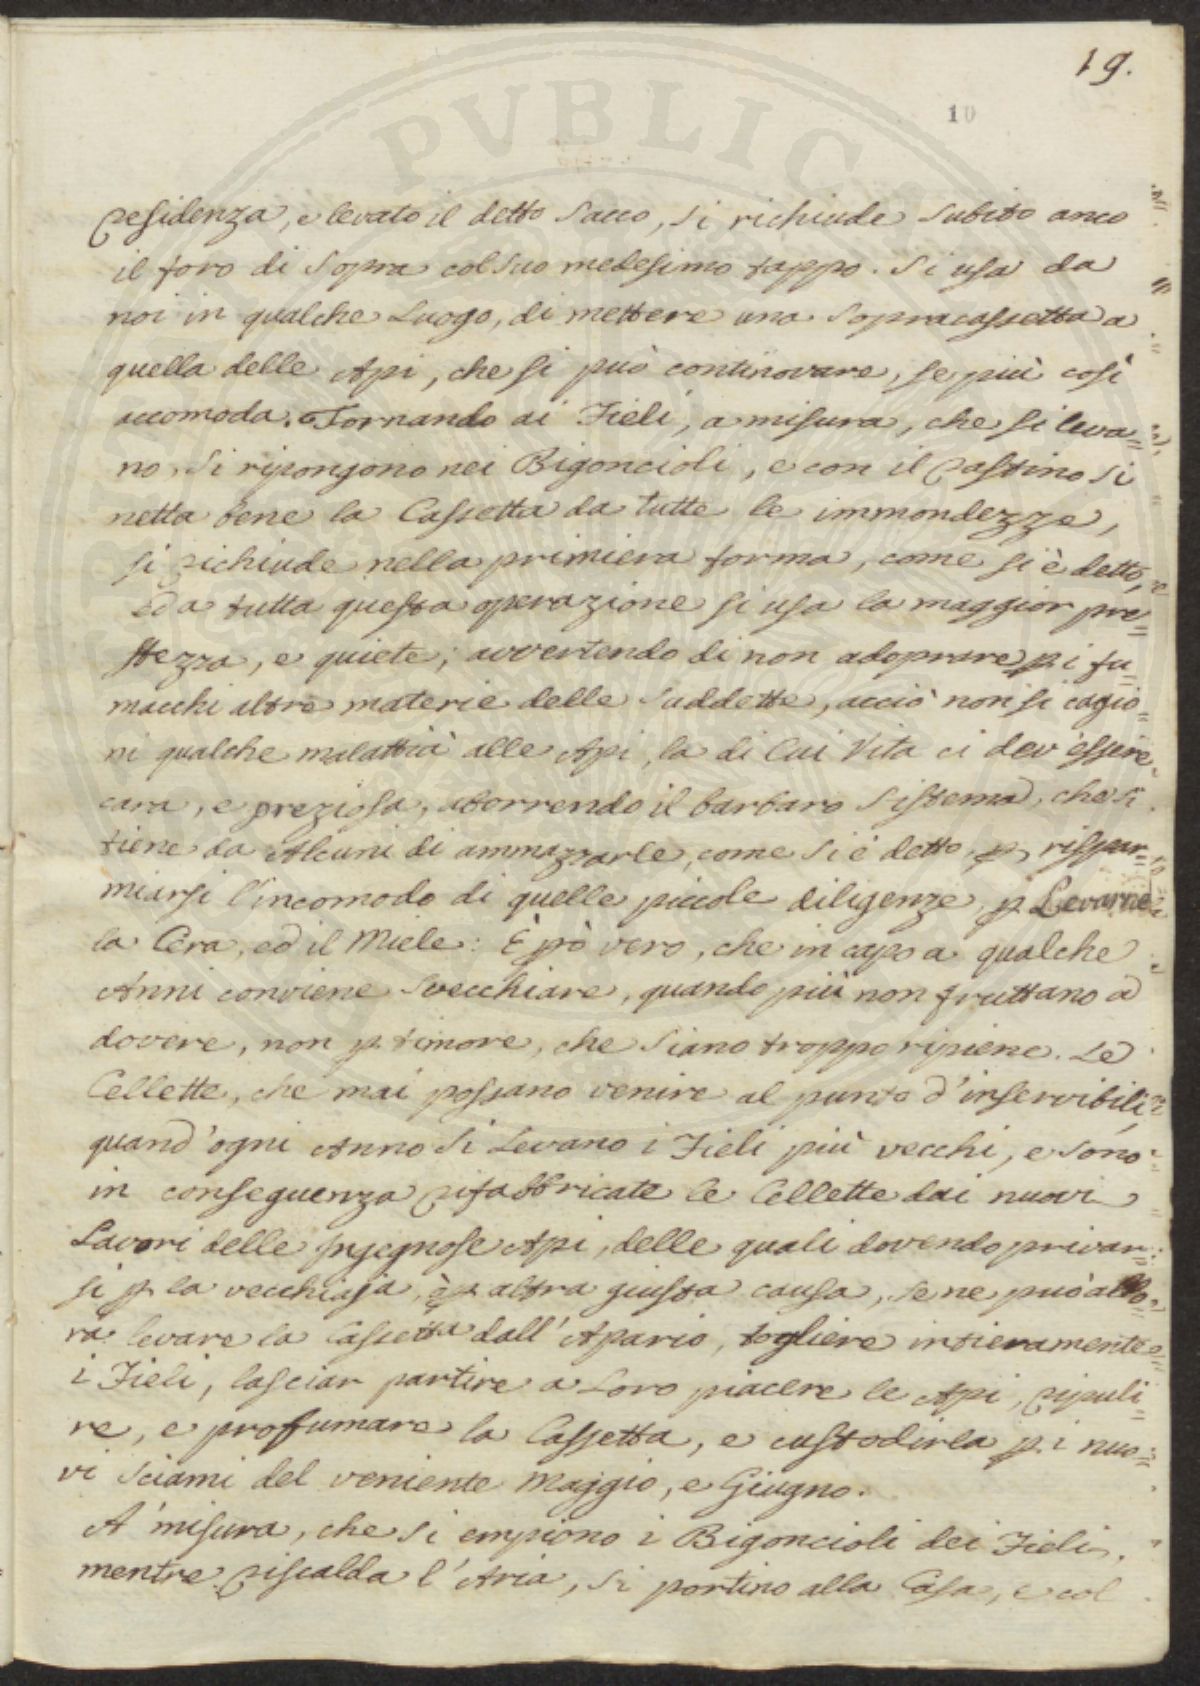 19.
10
residenza, e levato il detto Sacco, si richiude subito anco
il foro di sopra col suo medesimo tappo. Si usa da
noi in qualche Luogo, di mettere una Sopracassetta a
quella delle Api, che si può continovare, se più così
accomoda. Tornando ai Fieli, a misura, che si leva=
no, si ripongono nei Bigoncioli, e con il Pastino si
netta bene la Cassetta da tutte le immondezze,
si richiude nella primiera forma, come si è detto,
ed a tutta questa operazione si usa la maggior pre=
stezza, e quiete; avvertendo di non adoprare p. i fu=
macchi altre materie delle suddette, acciò non si cagio=
ni qualche malattia alle Api, la di Cui Vita ci dev'essere
cara, e preziosa, aborrendo il barbaro Sistema, che si
tiene da Alcuni di ammazzarle, come si è detto, p. rispar=
miarsi l'incomodo di quelle piccole diligenze p. Levarne
la Cera, ed il Miele: È pò vero, che in capo a qualche
Anni conviene svecchiare, quando più non fruttano a
dovere, non p. timore, che siano troppo ripiene. Le
Cellette, che mai possano venire al punto d'inservibili,
quand'ogni Anno si Levano i Fieli più vecchi, e sono
in conseguenza rifabbricate le Cellette dai nuovi
Lavori delle Ingegnose Api, delle quali dovendo privar=
si p. la vecchiaja, o p. altra giusta causa, se ne può allo=
ra levare la Cassetta dall'Apario, togliere intieramente
i Fieli, lasciar partire a Loro piacere le Api, ripuli=
re, e proffumare la Cassetta, e custodirla p. i nuo=
vi Sciami del veniente Maggio, e Giugno.
A' misura, che si empiono i Bigoncioli dei Fieli,
mentre riscalda l'Aria, si portino alla Casa, e col